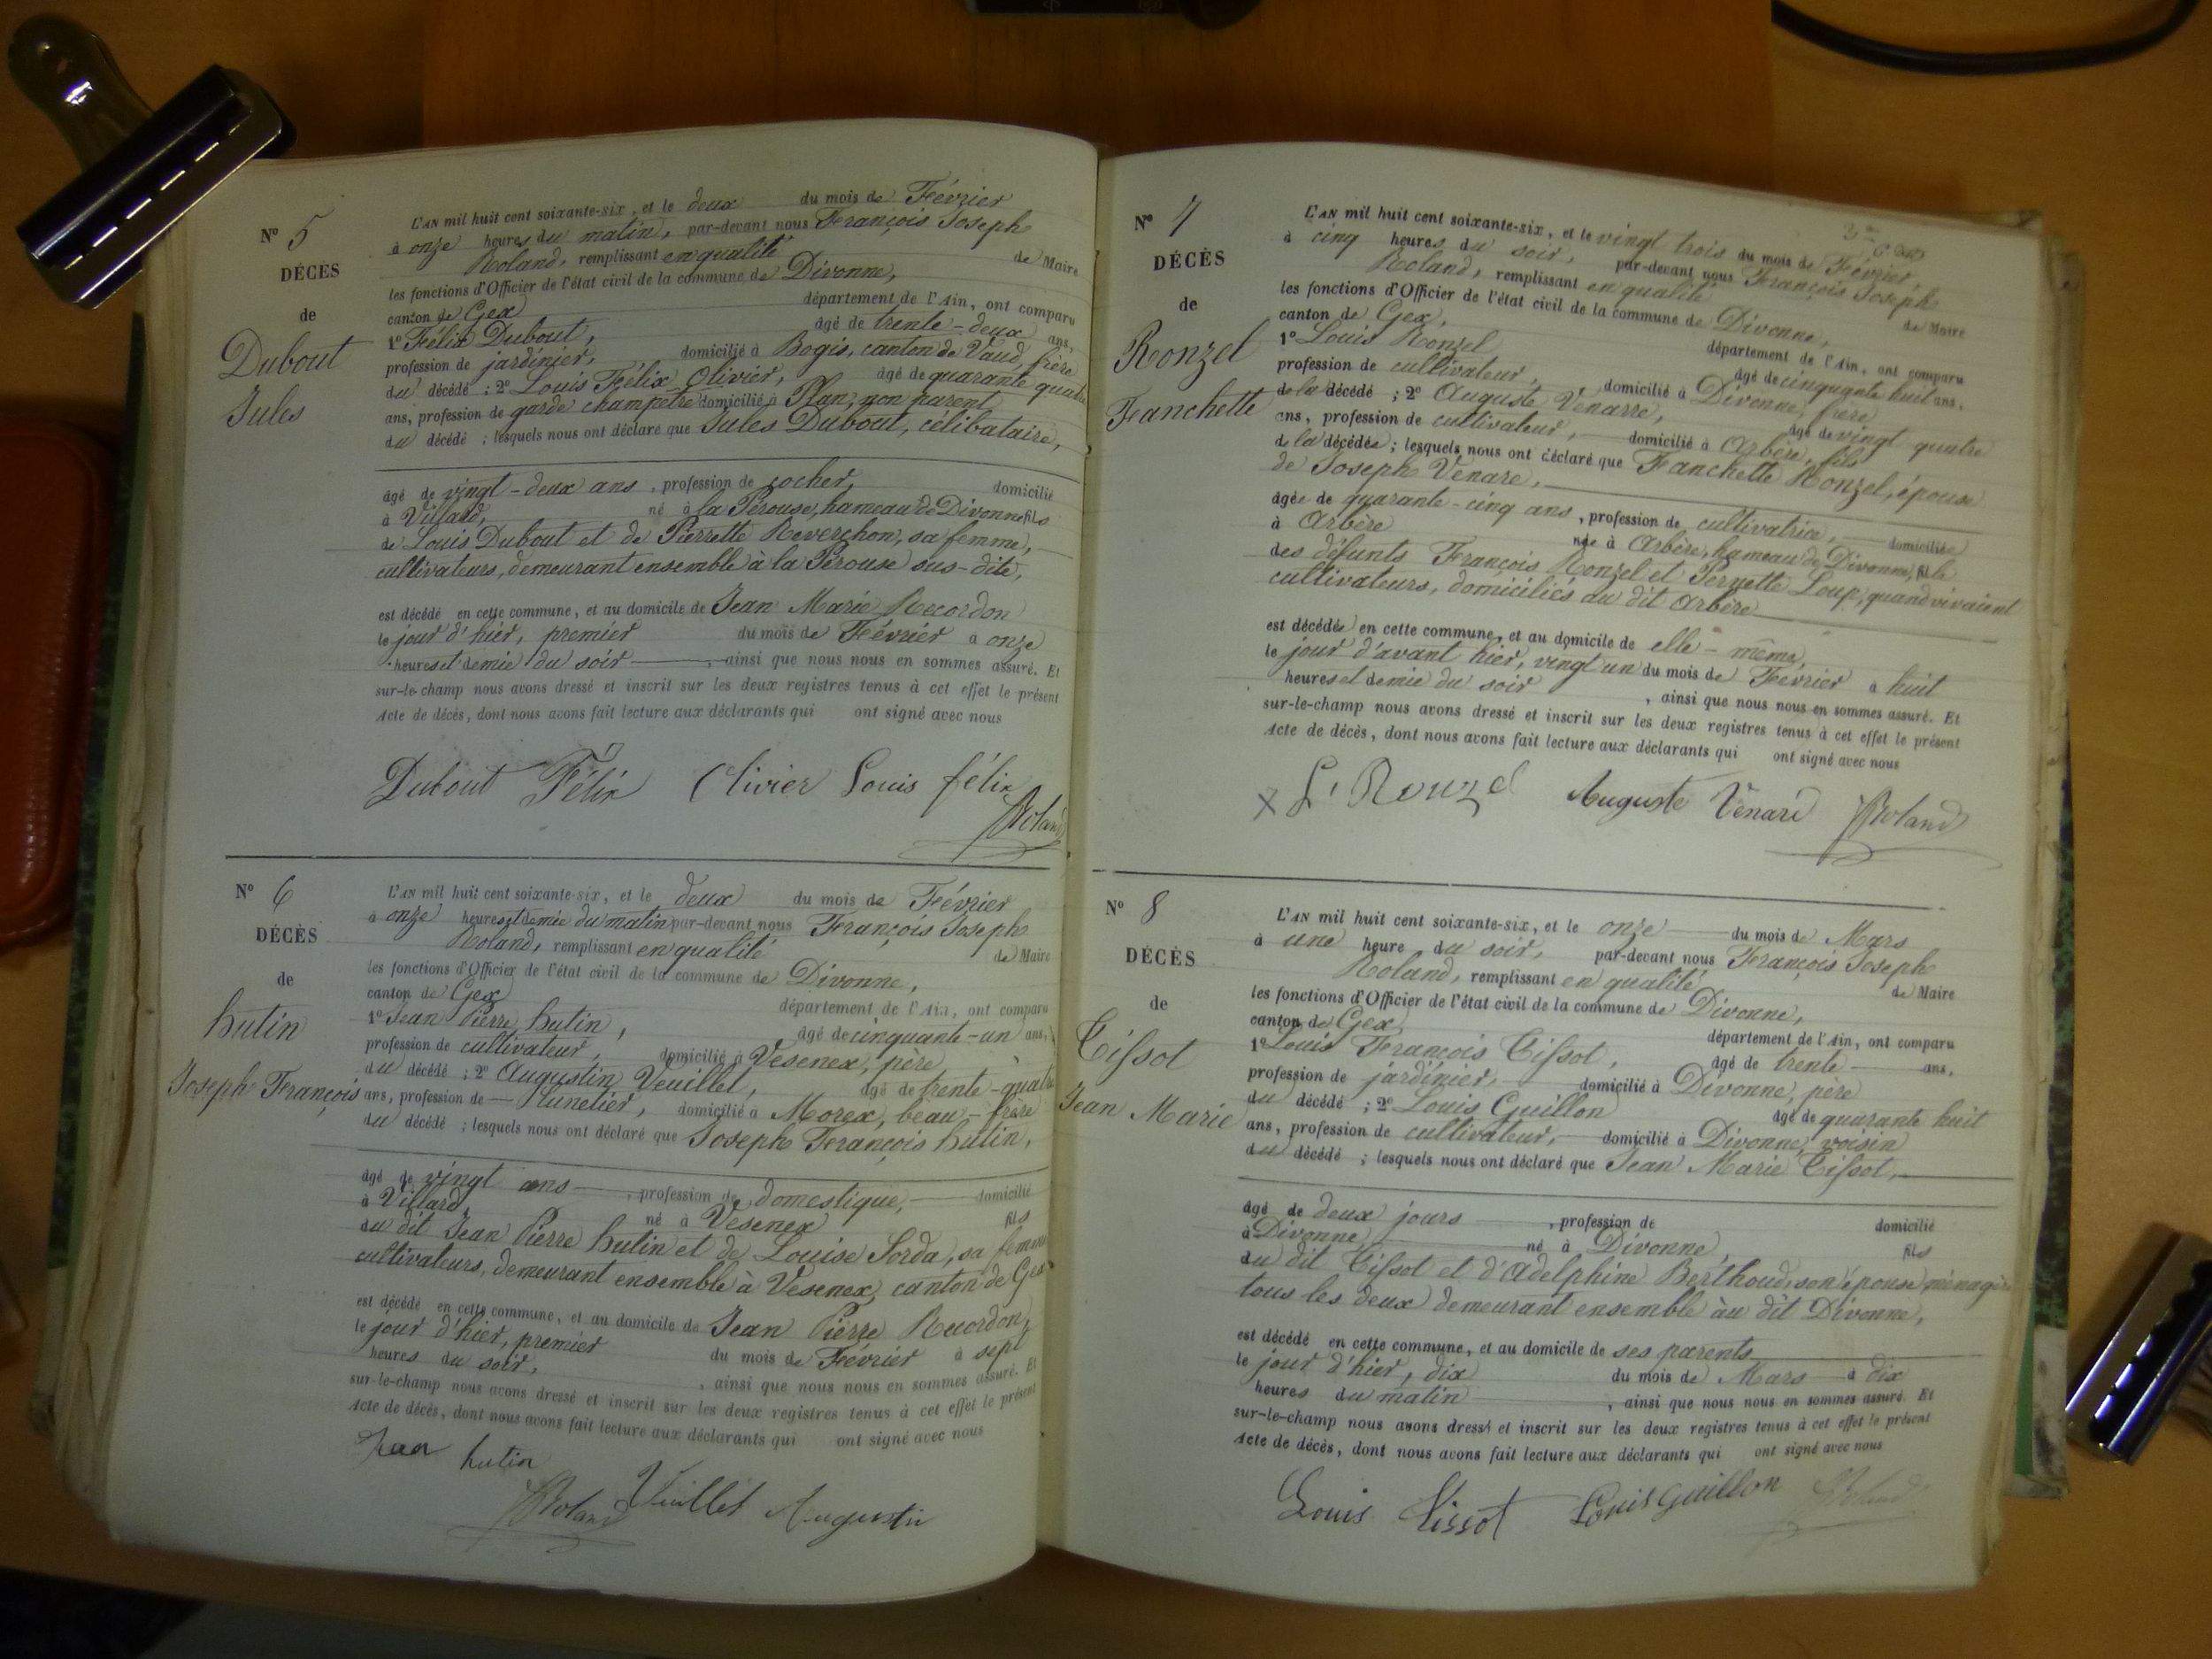 N° 5
DÉCÈS
de
Dubout
Jules
L'AN mil huit cent soixante-six, et le deux du mois de Février
à onze heures du matin, par-devant nous François Joseph
Roland, remplissant en qualité de Maire
les fonctions d'Officier de l'état civil de la commune de Divonne,
canton de Gex département de l'Ain, ont comparu
1° Félix Dubout, âgé de trente-deux ans,
profession de jardinier, domicilié à Bogis, canton de Vaud, frère
du décédé ; 2° Louis Félix Olivier, âgé de quarante quatre
ans, profession de garde champêtre domicilié à Plan, non parent
du décédé ; lesquels nous ont déclaré que Jules Dubout, célibataire,
âgé de vingt-deux ans, profession de cocher, domicilié
à Villard, né à la Pérouse, hameau de Divonne fils
de Louis Dubout et de Pierrette Reverchon, sa femme,
cultivateurs, demeurant ensemble à la Pérouse sus-dite,
est décédé en cette commune, et au domicile de Jean Marie Recordon
le jour d'hier, premier du mois de Février à onze
heures et demie du soir, ainsi que nous nous en sommes assuré. Et
sur-le-champ nous avons dressé et inscrit sur les deux registres tenus à cet effet le présent
Acte de décès, dont nous avons fait lecture aux déclarants qui ont signé avec nous
Dubout Félix Olivier Louis félix
Roland
N° 6
DÉCÈS
de
hutin
Joseph François
L'AN mil huit cent soixante-six, et le deux du mois de Février
à onze heures et demie du matin par-devant nous François Joseph
Roland, remplissant en qualité de Maire
les fonctions d'Officier de l'état civil de la commune de Divonne,
canton de Gex département de l'Ain, ont comparu
1° Jean Pierre hutin, âgé de cinquante-un ans,
profession de cultivateur, domicilié à Vesenex, père
du décédé ; 2° Augustin Veuillet, âgé de trente-quatre
ans, profession de lunetier, domicilié à Morex, beau-frère
du décédé ; lesquels nous ont déclaré que Joseph François hutin,
âgé de vingt ans, profession de domestique, domicilié
à Villard, né à Vesenex fils
du dit Jean Pierre hutin et de Louise Sorda, sa femme
cultivateurs, demeurant ensemble à Vesenex, canton de Gex
est décédé en cette commune, et au domicile de Jean Pierre Recordon,
le jour d'hier, premier du mois de Février à sept
heures du soir, ainsi que nous nous en sommes assuré. Et
sur-le-champ nous avons dressé et inscrit sur les deux registres tenus à cet effet le présent
Acte de décès, dont nous avons fait lecture aux déclarants qui ont signé avec nous
Jean hutin
Roland Vuillet Augustin
N° 7
DÉCÈS
de
Ronzel
Fanchette
L'AN mil huit cent soixante-six, et le vingt trois du mois de Février,
à cinq heures du soir, par-devant nous François Joseph
Roland, remplissant en qualité de Maire
les fonctions d'Officier de l'état civil de la commune de Divonne,
canton de Gex, département de l'Ain, ont comparu
1° Louis Ronzel âgé de cinquante huit ans,
profession de cultivateur, domicilié à Divonne, frère
de la décédé ; 2° Auguste Venarre, âgé de vingt quatre
ans, profession de cultivateur, domicilié à Arbère, fils
de la décédée ; lesquels nous ont déclaré que Fanchette Ronzel, épouse
de Joseph Venare,
âgée de quarante-cinq ans, profession de cultivatrice, domiciliée
à Arbère née à Arbère, hameau de Divonne, fille
des défunts François Ronzel et Pernette Loup, quand vivaient
cultivateurs, domiciliés au dit Arbère
est décédée en cette commune, et au domicile de elle-même,
le jour d'avant hier, vingt un du mois de Février à huit
heures et demie du soir, ainsi que nous nous en sommes assuré. Et
sur-le-champ nous avons dressé et inscrit sur les deux registres tenus à cet effet le présent
Acte de décès, dont nous avons fait lecture aux déclarants qui ont signé avec nous
x Ls Ronzel Auguste Venare Roland
N° 8
DÉCÈS
de
Tissot
Jean Marie
L'AN mil huit cent soixante-six, et le onze du mois de Mars
à une heure du soir, par-devant nous François Joseph
Roland, remplissant en qualité de Maire
les fonctions d'Officier de l'état civil de la commune de Divonne,
canton de Gex département de l'Ain, ont comparu
1° Louis François Tissot, âgé de trente ans,
profession de jardinier, domicilié à Divonne, père
du décédé ; 2° Louis Guillon âgé de quarante huit
ans, profession de cultivateur, domicilié à Divonne, voisin
du décédé ; lesquels nous ont déclaré que Jean Marie Tissot,
âgé de deux jours, profession de domicilié
à Divonne né à Divonne, fils
du dit Tissot et d'Adelphine Berthoud, son épouse ménagère
tous les deux demeurant ensemble au dit Divonne,
est décédé en cette commune, et au domicile de ses parents
le jour d'hier, dix du mois de Mars à dix
heures du matin, ainsi que nous nous en sommes assuré. Et
sur-le-champ nous avons dressé et inscrit sur les deux registres tenus à cet effet le présent
Acte de décès, dont nous avons fait lecture aux déclarants qui ont signé avec nous
Louis Tissot Louis Guillon Roland